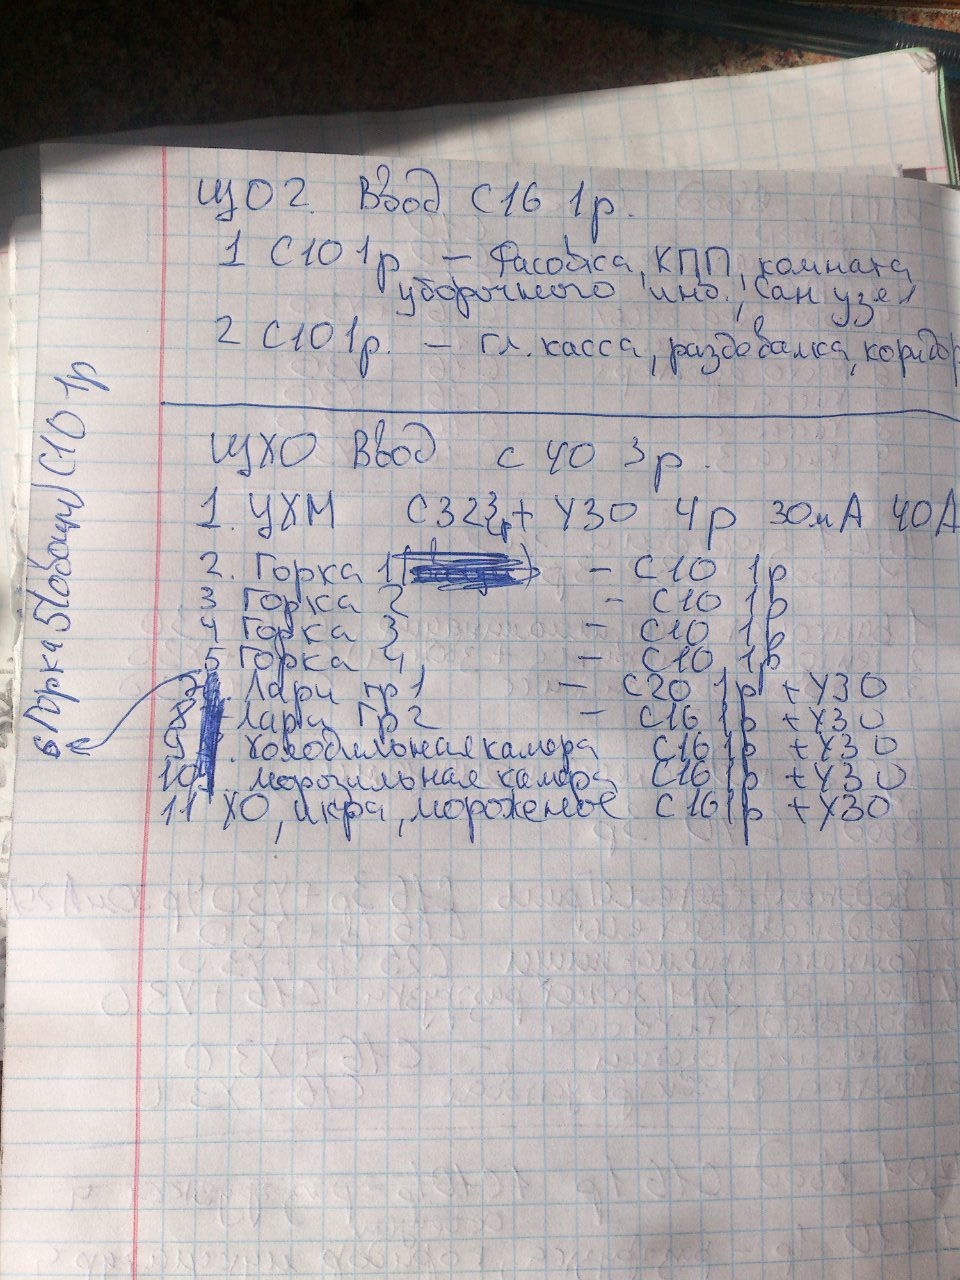 ЩО2. Ввод С16 1р.
1 С10 1р – Фасовка, КПП, комната
уборочного инв., Сан узел
2 С10 1р. – Гл. касса, раздевалка, коридор
ЩХО Ввод С 40 3р.
1. УХМ С32 3р + УЗО 4р 30мА 40А
2. Горка 1 – С10 1р
3 Горка 2 – С10 1р
4 Горка 3 – С10 1р
5 Горка 4, – С10, 1р
6 Горка 5 (овощи) С10 1р
7. Лари гр 1 – С20 1р + УЗО
8 Лари Гр 2 – С16 1р + УЗО
9 Холодильная камера С16 1р + УЗО
10 морозильная камера С16 1р + УЗО
11 ХО, икра, мороженое С16 1р + УЗО